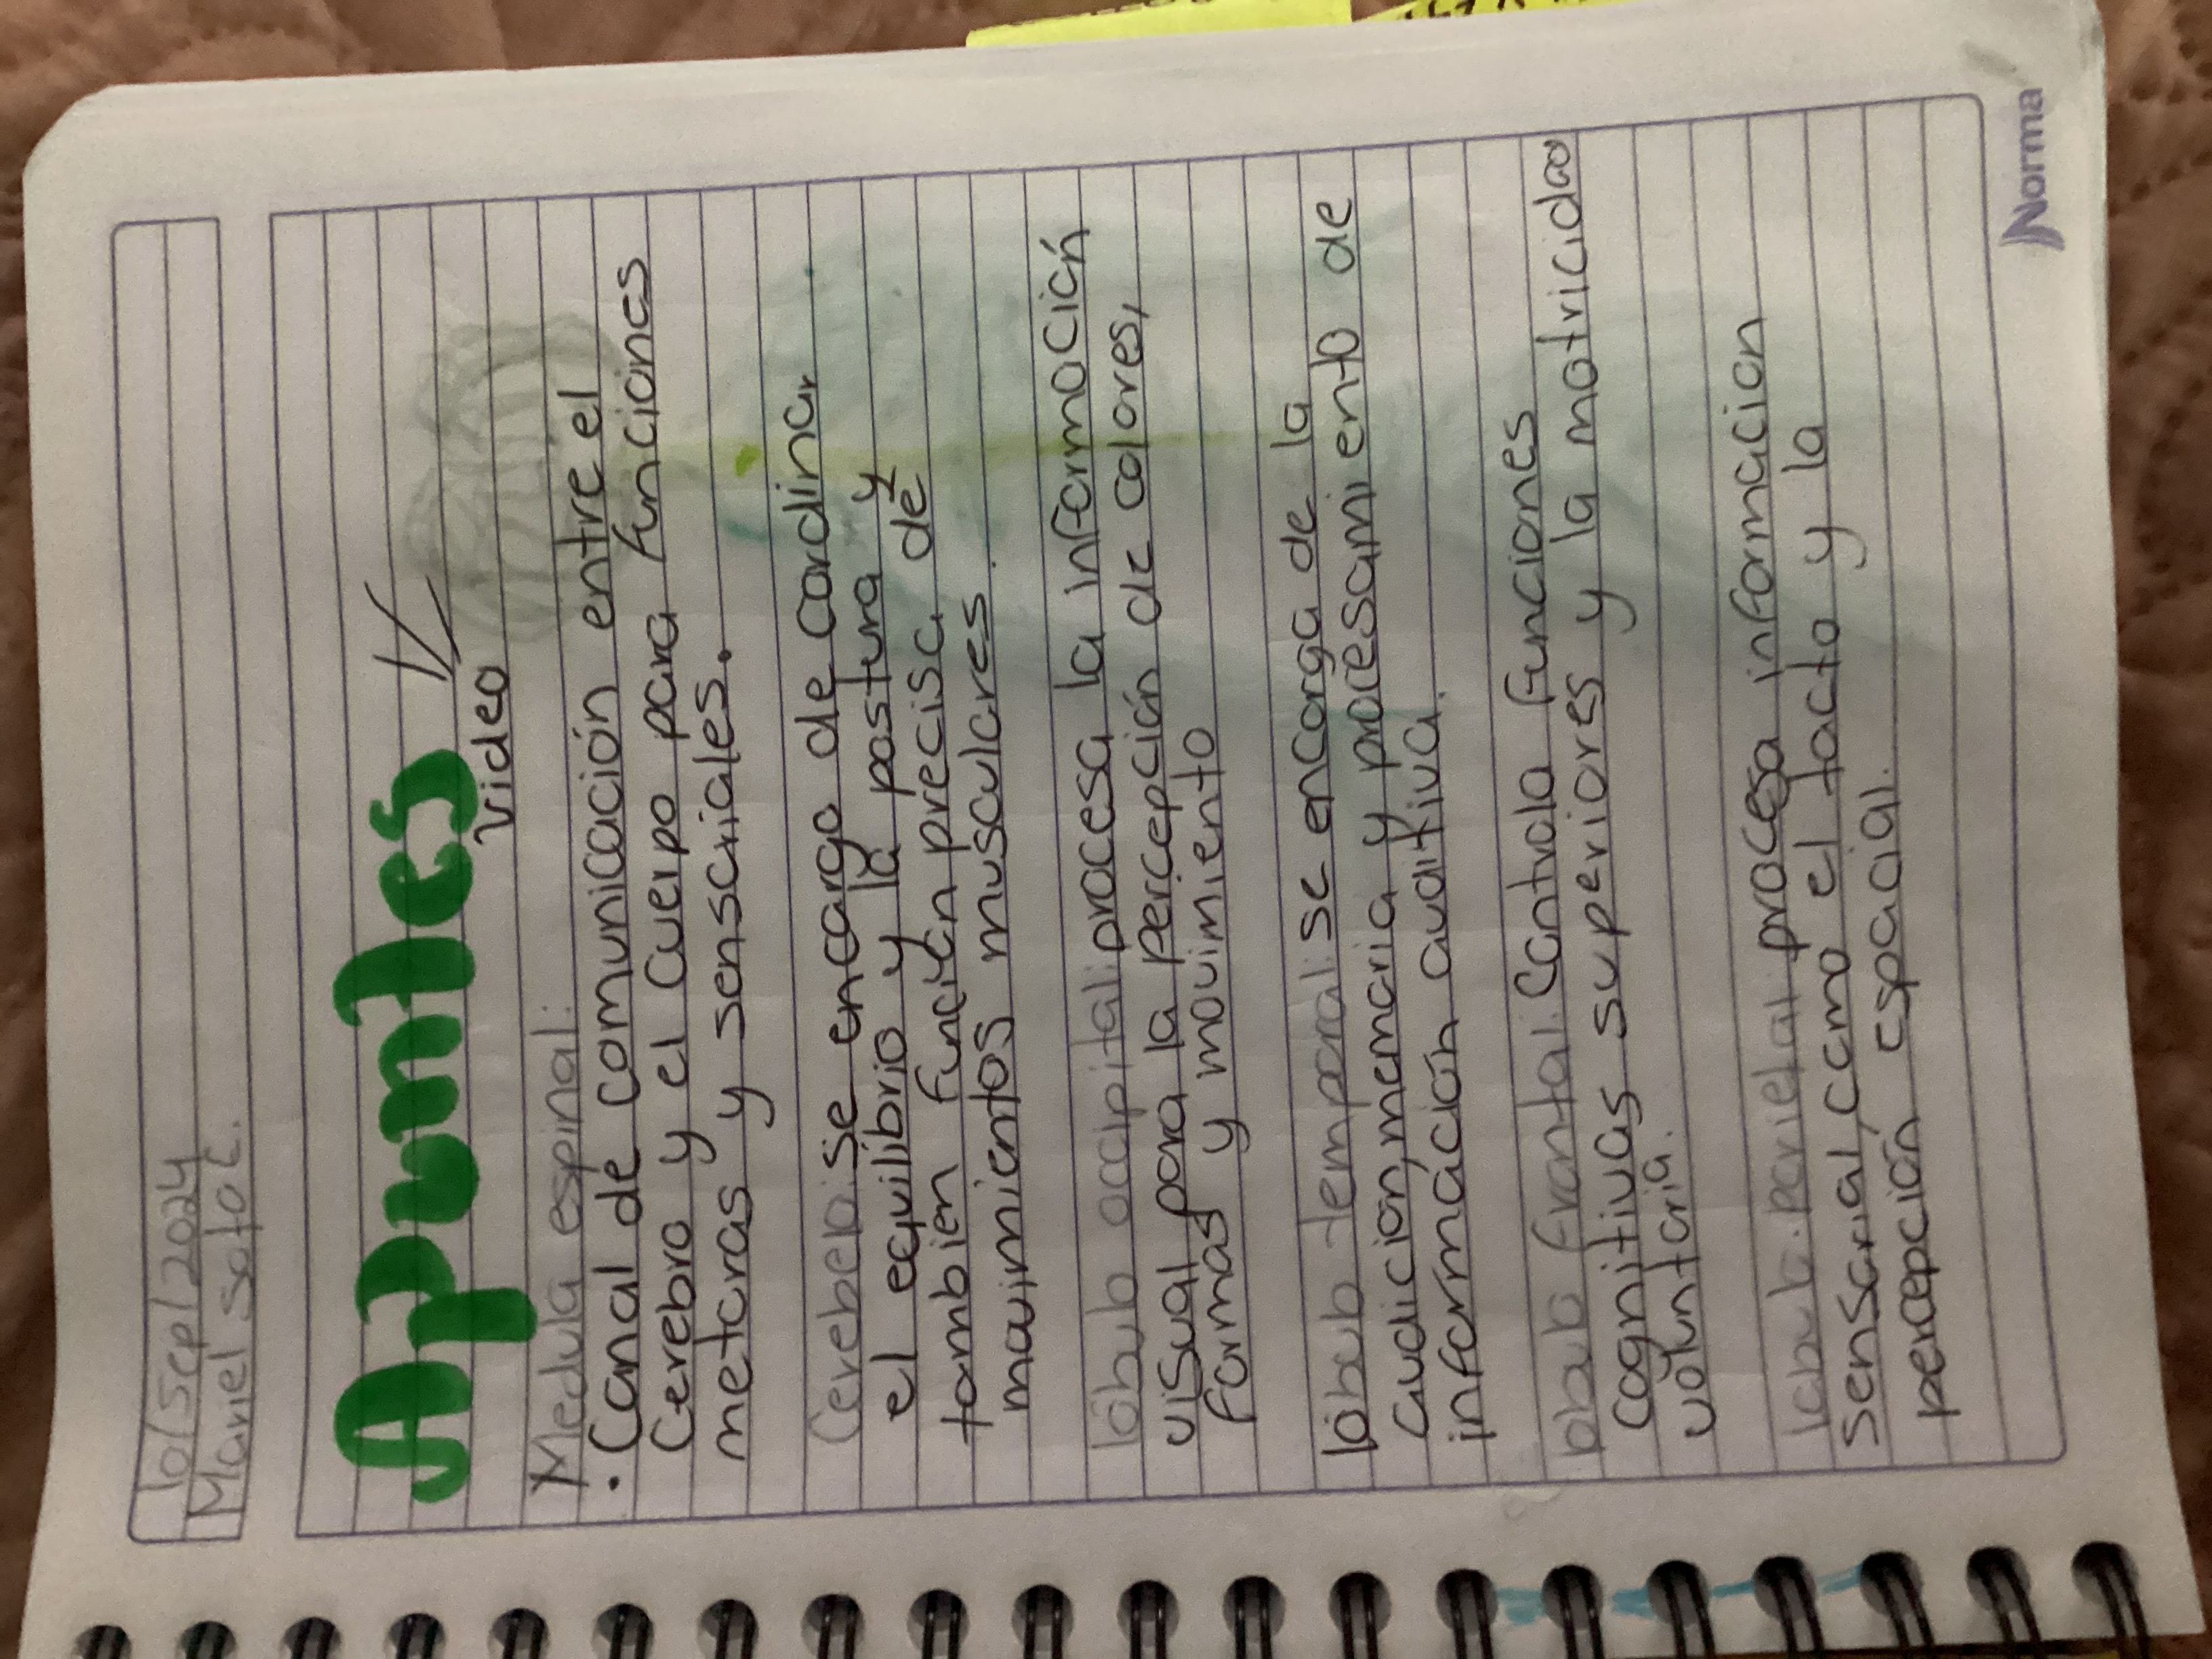 10/Sep/2024
Mariel Soto C.
Apuntes
Video
Medula espinal:
• Canal de comunicación entre el
Cerebro y el cuerpo para funciones
motoras y sensoriales.
Cerebelo: se encarga de cordinar
el equilibrio y la postura y
tambien función precisa de
movimientos musculares.
lóbulo occipital: procesa la información
visual para la percepción de colores,
formas y movimiento
lóbulo temporal: se encarga de la
audicion, memoria y procesamiento de
información auditiva.
lobulo frontal: Controla funciones
cognitivas superiores y la motricidad
voluntaria.
lobulo parietal: procesa informacion
sensorial, como el tacto y la
percepción espacial.
Norma